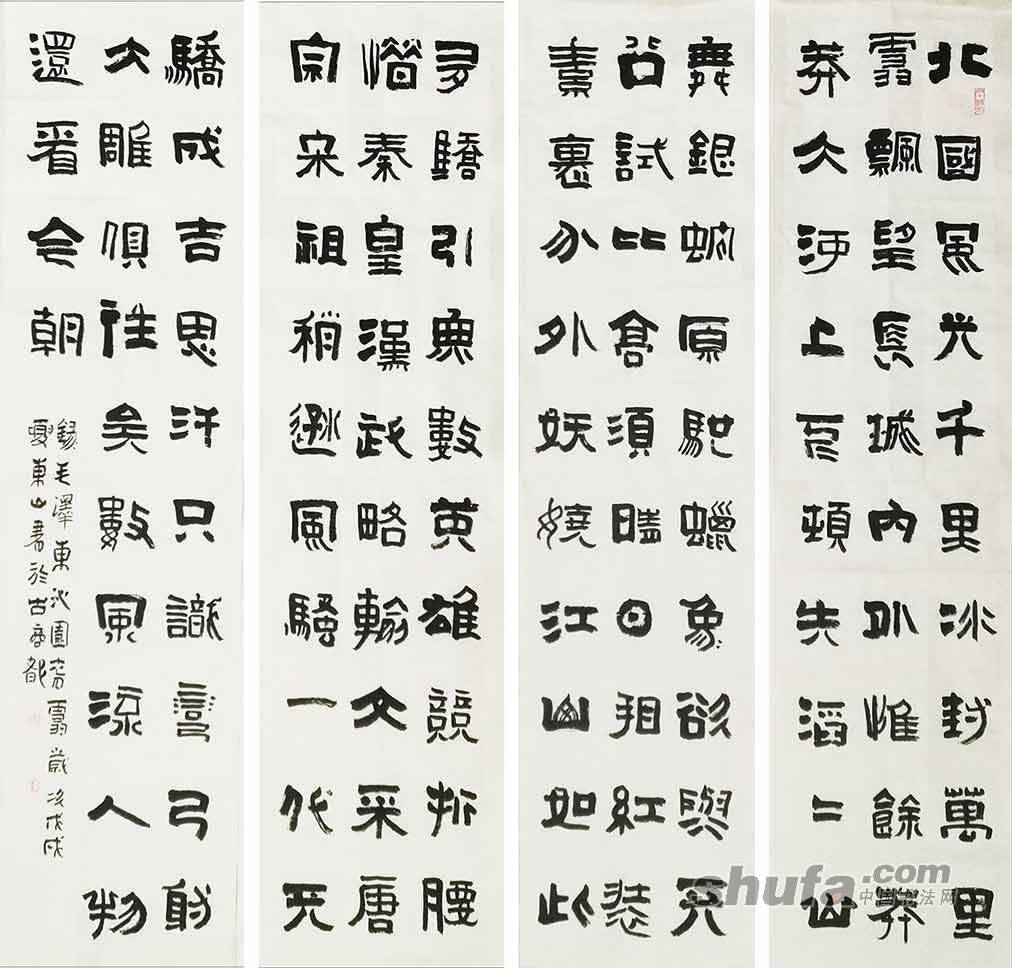 北國風光千里冰封萬里
雪飄望長城內外惟餘莽
莽大河上下頓失滔〻山
舞銀蛇原馳蠟象欲與天
公試比高須晴日看紅裝
素裹分外妖嬈江山如此
多驕引無數英雄競折腰
惜秦皇漢武略輸文采唐
宗宋祖稍遜風騷一代天
驕成吉思汗只識彎弓射
大雕俱往矣數風流人物
還看今朝
錄毛澤東沁園春雪歲次戊戌
夏東山書於古商都
shufa.com
中国书法网